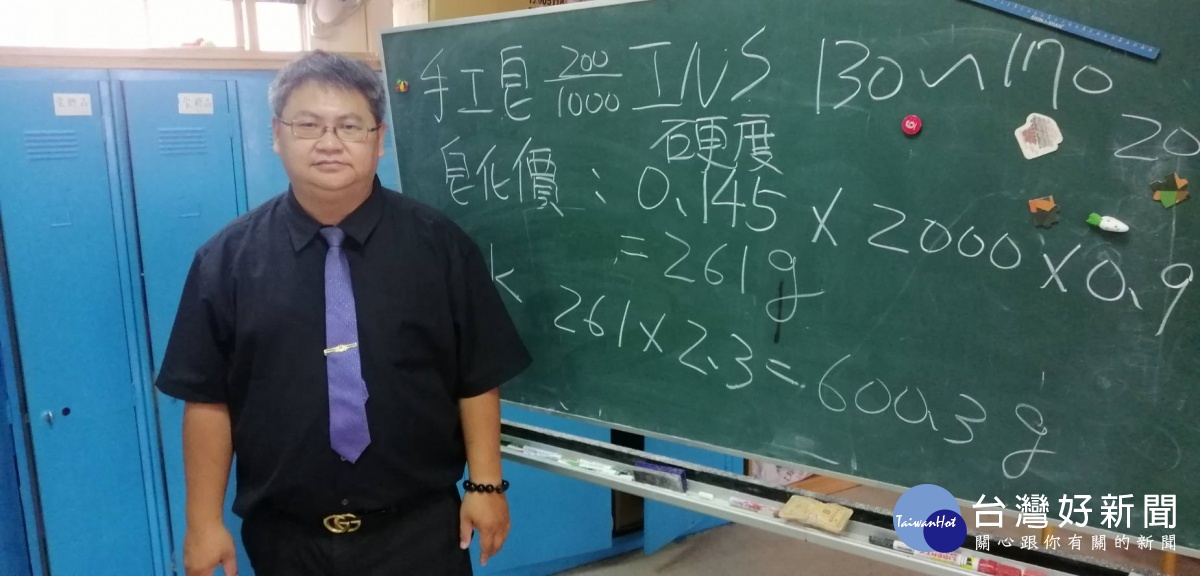 手工皂 200/1000 INS 130~170
硬度
20
皂化價：0.145×2000×0.9
=261g
水
261×2.3=600.3g
TaiwanHot
台灣好新聞
關心跟你有關的新聞